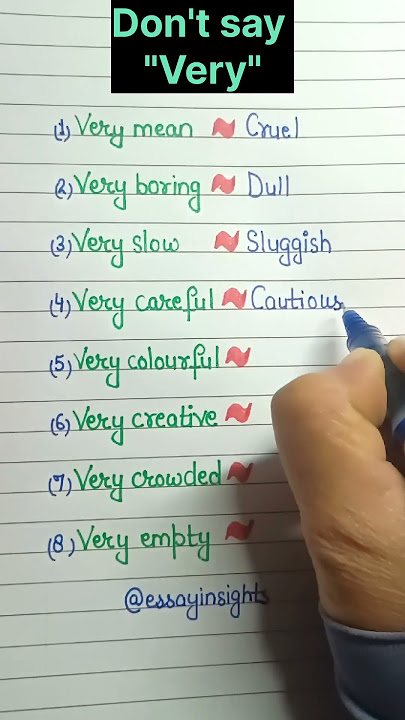 Don't say
"Very"
(1) Very mean ~ Cruel
(2) Very boring ~ Dull
(3) Very slow ~ Sluggish
(4) Very careful ~ Cautious
(5) Very colourful ~
(6) Very creative ~
(7) Very crowded ~
(8) Very empty ~
@essayinsights